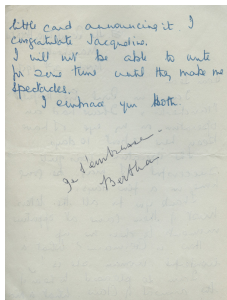 little card announcing it I
congratulate Jacqueline.
I will not be able to write
for some time until they make me
spectacles.
I embrace you both.
Je t'embrasse.
Bertha